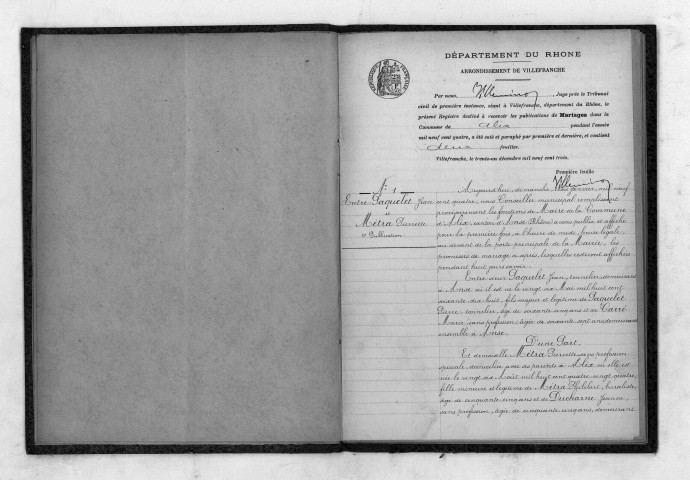 DÉPARTEMENT DU RHONE
ARRONDISSEMENT DE VILLEFRANCHE
Par nous, Juge près le Tribunal
civil de première instance, séant à Villefranche, département du Rhône, le
présent Registre destiné à recevoir les publications de Mariages dans la
Commune de Alix pendant l'année
mil neuf cent quatre, a été coté et paraphé par première et dernière, et contient
deux feuilles.
Villefranche, le trente-un décembre mil neuf cent trois.
Première feuille
N° 1
Entre Paquelet Jean
et
Métra Pierrette
Publication
Aujourd'hui dimanche janvier, mil neuf
cent quatre, nous Conseiller municipal remplissant
provisoirement les fonctions de Maire de la Commune
d'Alix, canton d'Anse (Rhône) avons publié et affiché
pour la première fois, à l'heure de midi, heure légale,
au devant de la porte principale de la Mairie, les
promesses de mariage ci après, lesquelles resteront affichées
pendant huit jours savoir:
Entre sieur Paquelet Jean, tonnelier, demeurant
à Anse où il est né le vingt six Mai mil huit cent
soixante dix huit, fils majeur et légitime de Paquelet
Pierre, tonnelier, âgé de soixante cinq ans et de Carré
Marie, sans profession, âgée de soixante sept ans demeurant
ensemble à Anse.
D'une Part.
Et demoiselle Métra Pierrette sans profession
spéciale domiciliée avec ses parents à Alix où elle est
née le vingt six Août mil huit cent quatre vingt quatre,
fille mineure et légitime de Métra Philibert, buraliste,
âgé de cinquante cinq ans et de Ducharne Jeanne
sans profession, âgée de cinquante cinq ans, demeurant